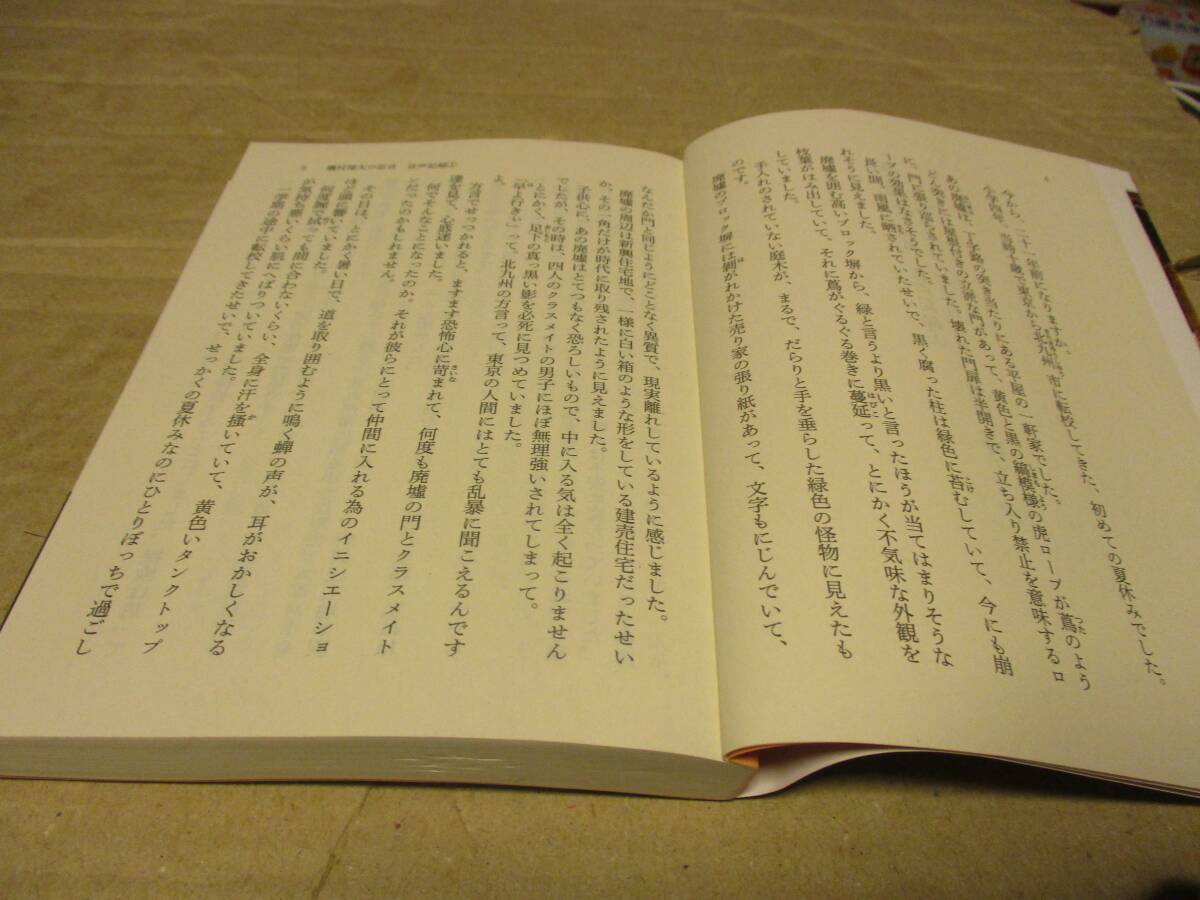 4
今から、二十一年前になりますか。
小学四年、当時十歳で東京から北九州市に転校してきた、初めての夏休みでした。
あの廃墟は、丁字路の突き当たりにある平屋の一軒家でした。
どん突きには屋根付きの立派な門があって、黄色と黒の縞模様の虎ロープが蔦のよう
に、門に張り巡らされていました。壊れた門扉は半開きで、立ち入り禁止を意味するロ
ープの効果はなさそうでした。
長い間、雨風に晒されていたせいで、黒く腐った柱は緑色に苔むしていて、今にも崩
れそうに見えました。
廃墟を囲む高いブロック塀から、緑と言うより黒いと言ったほうが当てはまりそうな
枝葉がはみ出していて、それに蔦がぐるぐる巻きに蔓延って、とにかく不気味な外観を
していました。
手入れのされていない庭木が、まるで、だらりと手を垂らした緑色の怪物に見えたも
のです。
廃墟のブロック塀には剥がれかけた売り家の張り紙があって、文字もにじんでいて、
5
なんだか門と同じようにどことなく異質で、現実離れしているように感じました。
廃墟の周辺は新興住宅地で、一様に白い箱のような形をしている建売住宅だったせい
か、その一角だけが時代に取り残されたように見えました。
子供心に、あの廃墟はとてつもなく恐ろしいもので、中に入る気は全く起こりません
でしたが、その時は、四人のクラスメイトの男子にほぼ無理強いされてしまって。
とにかく、足下の真っ黒い影を必死に見つめていました。
「早よ行きぃ」って、北九州の方言って、東京の人間にはとても乱暴に聞こえるんです
よ。
方言でせっつかれると、ますます恐怖心に苛まれて、何度も廃墟の門とクラスメイト
達を見て、心底迷いました。
何でそんなことになったのか。それが彼らにとって仲間に入れる為のイニシエーショ
ンだったのかもしれません。
その日は、とにかく暑い日で、道を取り囲むように鳴く蝉の声が、耳がおかしくなる
ほど頭に響いていました。
何度腕で拭っても間に合わないくらい、全身に汗を掻いていて、黄色いタンクトップ
が気持ち悪いくらい肌にへばりついていました。
一学期の途中に転校してきたせいで、せっかくの夏休みなのにひとりぼっちで過ごし